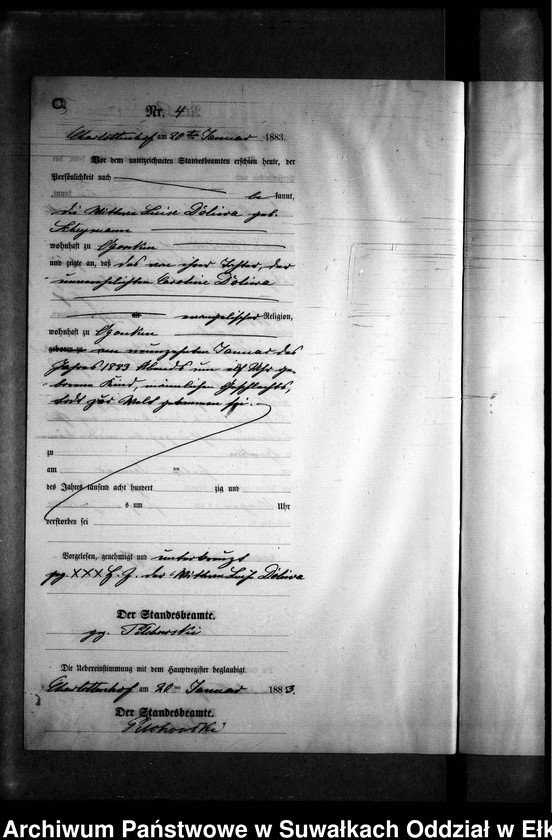 C
Nr. 4
Charlottenhof am 20ten Januar 1883.
Vor dem unterzeichneten Standesbeamten erschien heute, der
Persönlichkeit nach
be kannt,
die Wittwe Luise Doliwa geb.
wohnhaft zu Czonken
und zeigte an, daß das von ihrer Tochter, der
unverehelichten Caroline Doliwa
evangelischer Religion,
wohnhaft zu Czonken
geboren zu am neunzehnten Januar des
Jahres 1883 Abends um elf Uhr ge-
borene Kind, männlichen Geschlechts,
todt zur Welt gekommen sei.
zu
am ten
des Jahres tausend acht hundert zig und
s um Uhr
verstorben sei
Vorgelesen, genehmigt und unterkreuzt
gz. XXX H. Z. der Wittwe Luise Doliwa
Der Standesbeamte.
gz.
Die Uebereinstimmung mit dem Hauptregister beglaubigt.
Charlottenhof am 20ten Januar 1883.
Der Standesbeamte.
Archiwum Państwowe w Suwałkach Oddział w Ełk